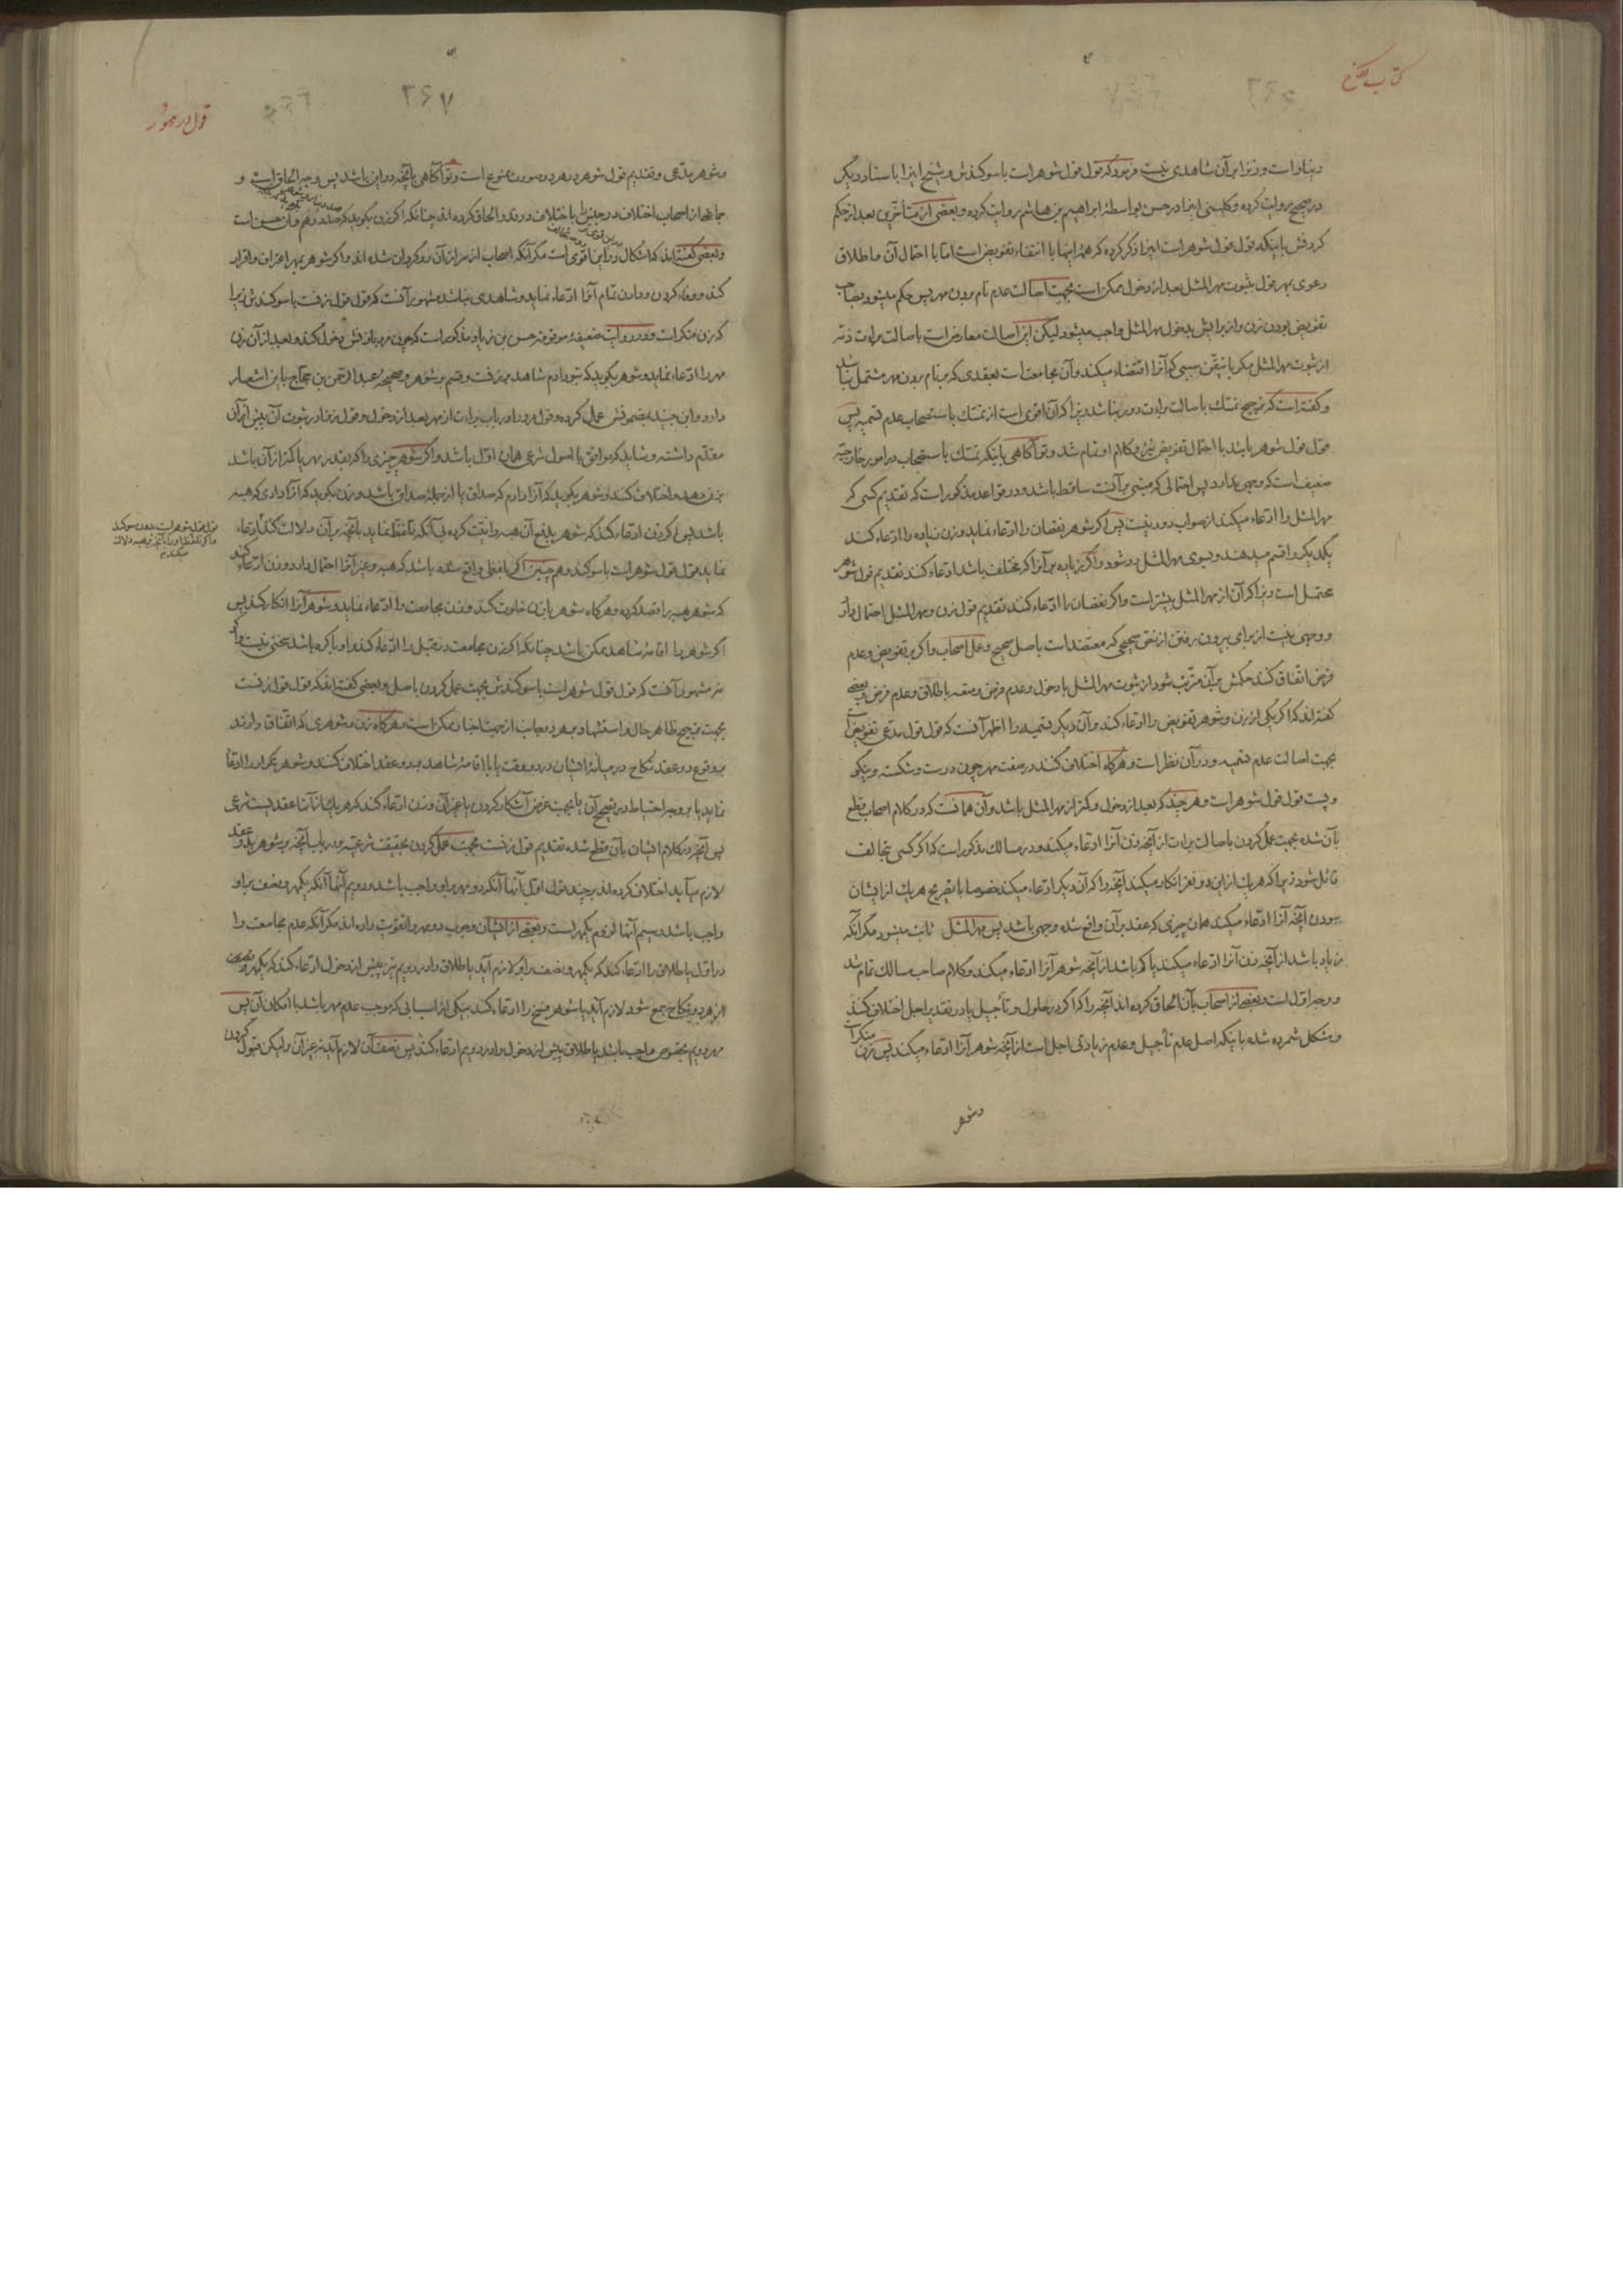 کتاب نکاح
دینار است و زنرا بر آن شاهدی نیست فرمود که قول قول شوهر است با سوکندش و شیخ اینرا باسناد دیکر
در صحیح روایت کرده و کلینی اینرا در حسن بواسطهٔ ابراهیم بن هاشم روایت کرده و بعضی از متأخرین بعد از حکم
کردنش باینکه قول قول شوهر است اینرا ذکر کرده که همهٔ اینها با انتفاء تفویض است اما با احتمال آن و اطلاق
دعوی مهر قول بثبوت مهر المثل بعد از دخول ممکن است بجهت اصالت عدم نام بردن مهر پس حکم میشود بصاحب
تفویض بودن زن و از برایش بدخول مهر المثل واجب میشود لیکن این اصالت معارض است باصالت براءت ذمه
از ثبوت مهر المثل مکر با تیقن سببی که آنرا اقتضاء میکند و آن مجامعت است بعقدی که بر نام بردن مهر مشتمل نباشد
و کفته است که ترجیح تمسک باصالت براءت دور نباشد زیرا که آن اقوی است از تمسک باستصحاب عدم تسمیه پس
قول قول شوهر باشد با احتمال تفویض نیز و کلام او تمام شد و تو آکاهی باینکه تمسک باستصحاب در امور خارجیه
ضعیف است که وجهی ندارد پس احتمالی که مبنی بر آنست ساقط باشد و در قواعد مذکور است که تقدیم کسی که
مهر المثل را ادعاء میکند از صواب دور نیست پس اکر شوهر نقصان را ادعاء نماید و زن زیاده را ادعاء کند
یکدیکر را قسم میدهند و بسوی مهر المثل رد شود و اکر زیاده بر آنرا که مختلف باشد ادعاء کنند تقدیم قول شوهر
محتمل است زیرا که آن از مهر المثل بیشتر است و اکر نقصان را ادعاء کنند تقدیم قول زن و مهر المثل احتمال دارد
و وجهی نیست از برای بیرون رفتن از نص صحیحی که معتضد است باصل صحیح و عمل اصحاب و اکر بر تفویض و عدم
فرض اتفاق کنند حکمش بر آن مترتب شود از ثبوت مهر المثل با دخول و عدم فرض و متعه با طلاق و عدم فرض و بعضی
کفته اند که اکر یکی از زن و شوهر تفویض را ادعاء کند و آن دیکر تسمیه را اظهر آنست که قول قول مدعی تفویض است
بجهت اصالت عدم تسمیه و در آن نظر است و هرکاه اختلاف کنند در صفت مهر چون درست و شکسته و نیکو
و پست قول قول شوهر است و هر چند که بعد از دخول و کمتر از مهر المثل باشد و آن همانست که در کلام اصحاب قطع
بآن شده بجهت عمل کردن باصالت براءت از آنچه زن آنرا ادعاء میکند و در مسالک مذکور است که اکر کسی بتحالف
قائل شود زیرا که هر یک از این دو نفر انکار میکند آنچه را که آن دیکر ادعاء میکند خصوصا با تصریح هر یک از ایشان
ببودن آنچه آنرا ادعاء میکند همان چیزی که عقد بر آن واقع شده وجهی باشد پس مهر المثل ثابت میشود مکر آنکه
زیاد باشد از آنچه زن آنرا ادعاء میکند یا کم باشد از آنچه شوهر آنرا ادعاء میکند و کلام صاحب مسالک تمام شد
و وجه اول است و بعضی از اصحاب بآن الحاق کرده اند آنچه را که اکر در حلول و تأجیل یا در تقدیر اجل اختلاف کنند
و مشکل شمرده شده باینکه اصل عدم تأجیل و عدم زیادتی اجل است از آنچه شوهر آنرا ادعاء میکند پس زن منکر است
و شوهر
۲۶۷
قول در مهور
و شوهر مدعی و تقدیم قول شوهر در هر دو صورت ممنوع است و تو آکاهی بآنچه در این باشد پس وجه الحاق است و
جماعتی از اصحاب اختلاف در جنس را باختلاف در قدر الحاق کرده اند چنانکه اکر زن بکوید که صد درهم و آن حسن است
و بعضی کفته اند که اشکال در این اقوی است مکر آنکه اصحاب از سر از آن روکردان شده اند و اکر شوهر بمهر اعتراف و اقرار
کند و وفاء کردن و دادن تمام آنرا ادعاء نماید و شاهدی نباشد مشهور آنست که قول قول زنست با سوکندش زیرا
که زن منکر است و در روایت ضعیفهٔ موقوفهٔ حسن بن زیاد مذکور است که چون مرد بزنش دخول کند و بعد از آن زن
مهر را ادعاء نماید و شوهر بکوید که بتو دادم شاهد بر زنست و قسم بر شوهر و صحیحهٔ عبد الرحمن بن حجاج باین اشعار
دارد و ابن جنید بمضمونش عمل کرده و قول مرد را در باب براءت از مهر بعد از دخول و قول زنرا در ثبوت آن پیش از آن
مقدم داشته و شاید که موافق با اصول شرعی همان اول باشد و اکر شوهر چیزی را که بقدر مهر یا کمتر از آن باشد
بزن دهد و اختلاف کنند و شوهر بکوید که آنرا دادم که صداق یا از جملهٔ صداق باشد و زن بکوید که آنرا دادی که هبه
باشد پس اکر زن ادعاء کند که شوهر بدفع آن هبه را نیت کرده بی آنکه تلفظ نماید بآنچه بر آن دلالت کند یا ادعاء
قول قول شوهر است بدون سوکند
و اکر تلفظ او را بآنچه بر هبه دلالت
میکند
نماید قول قول شوهر است با سوکند و هم چنین اکر لفظی واقع شده باشد که هبه و غیر آنرا احتمال دارد و زن ادعاء کند
که شوهر هبه را قصد کرده و هرکاه شوهر با زن خلوت کند و زن مجامعت را ادعاء نماید و شوهر آنرا انکار کند پس
اکر شوهر را اقامهٔ شاهد ممکن باشد چنانکه اکر زن مجامعت در قبل را ادعاء کند و او باکره باشد سخنی نیست و اکر
نه مشهور آنست که قول قول شوهر است با سوکندش بجهت عمل کردن باصل و بعضی کفته اند که قول قول زنست
بجهت ترجیح ظاهر حال و استشهاد بر هر دو جانب از جهت اخبار ممکن است و هرکاه زن و شوهری که اتفاق دارند
بوقوع دو عقد نکاح در میانهٔ ایشان در دو وقت یا با اقامهٔ شاهد بر دو عقد اختلاف کنند و شوهر تکرار را ادعا
نماید یا بر وجه احتیاط در تصحیح آن یا بجهت غرض آشکار کردن یا غیر آن و زن ادعاء کند که هر یک از آنها عقدیست شرعی
پس آنچه در کلام ایشان بآن قطع شده تقدیم قول زنست بجهت عمل کردن بحقیقت شرعیه و در باب آنچه بر شوهر بدو عقد
لازم میآید اختلاف کرده اند بر چند قول اول آنها آنکه دو مهر بر او واجب باشد و دویم آنها آنکه یکمهر و نصف بر او
واجب باشد و سیم آنها لزوم یکمهر است و بعضی از ایشان وجوب دو مهر را تقویت داده اند مکر آنکه عدم مجامعت را
در اول با طلاق را ادعاء کند که یکمهر و نصف بر او لازم آید یا طلاق را در دویم نیز پیش از دخول ادعاء کند که یکمهر و نصف
از هر دو نکاح جمع شود لازم آید یا شوهر فسخ را ادعاء کند بیکی از اسبابی که موجب عدم مهر باشد با امکان آن پس
مهر دویم بخصوص واجب باشد یا طلاق پیش از دخول را در دویم ادعاء کند پس نصف آن لازم آید نه غیر آن و لیکن قبول کردن